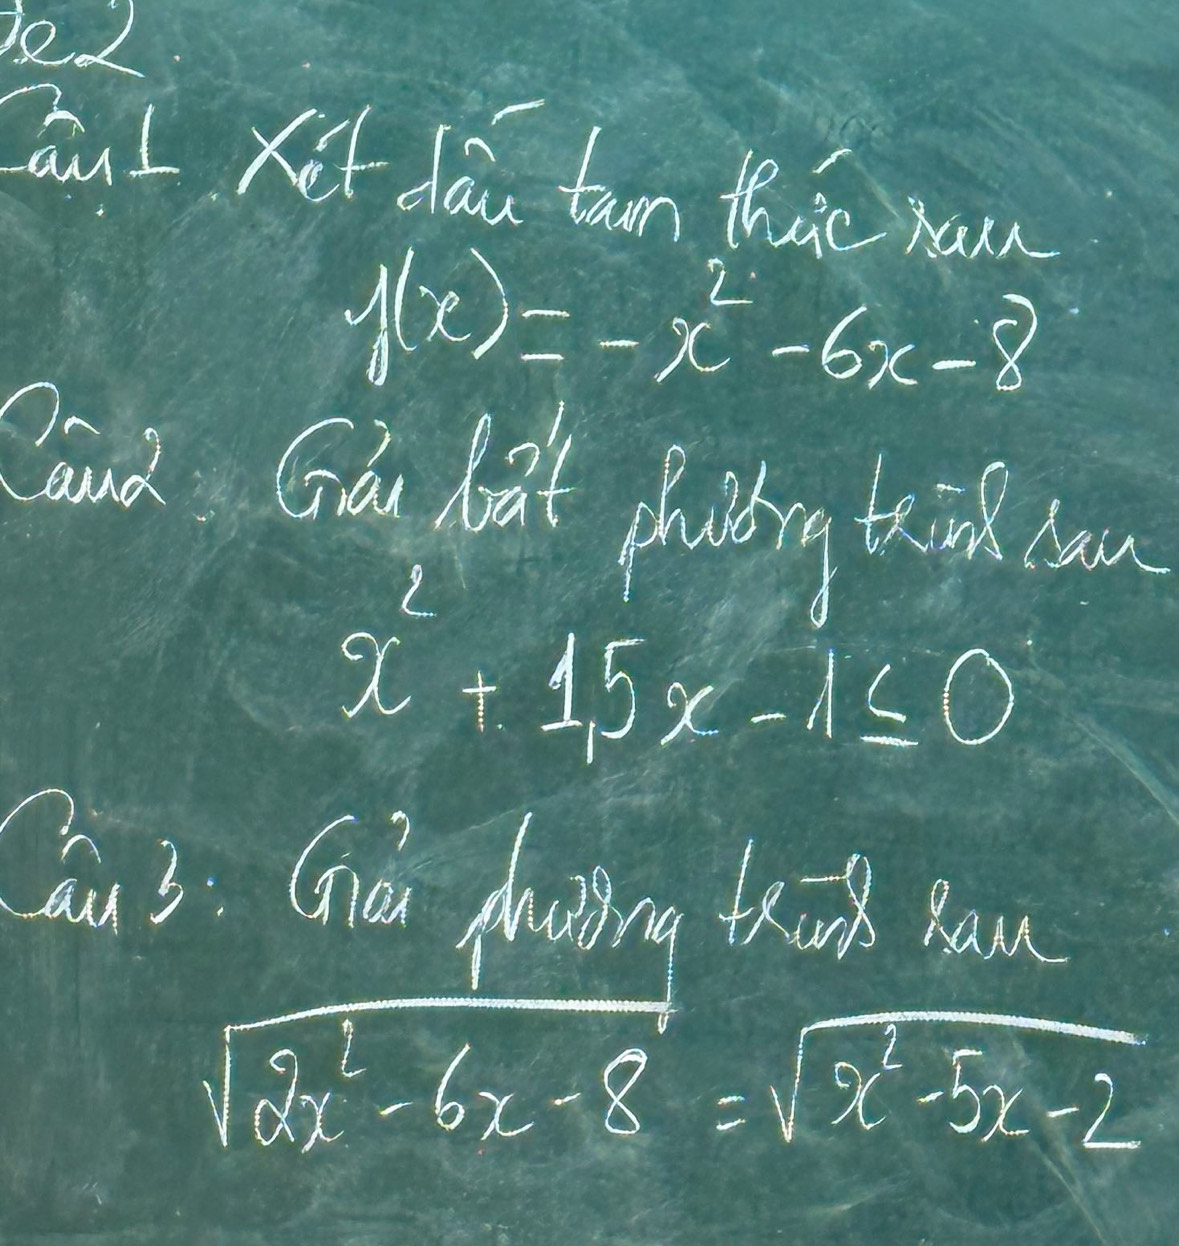 Đe 2
Câu 1 Xét dấu tam thức sau
f(x) = - x² - 6x - 8
Câu 2. Giải bất phương trình sau
x² + 1,5x - 1 ≤ 0
Câu 3: Giải phương trình sau
√(2x² - 6x - 8) = √(x² - 5x - 2)